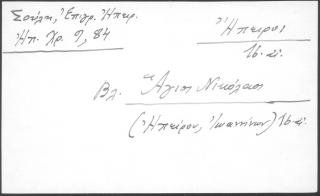 Σούλη, Ἐπιγρ. Ἠπειρ.
Ἠπ. Χρ. 9, 84
Ἤπειρος
16 αἰ.
Βλ. Ἅγιοι Νικόλαοι
(Ἠπείρου, Ἰωαννίνων) 16 αἰ.